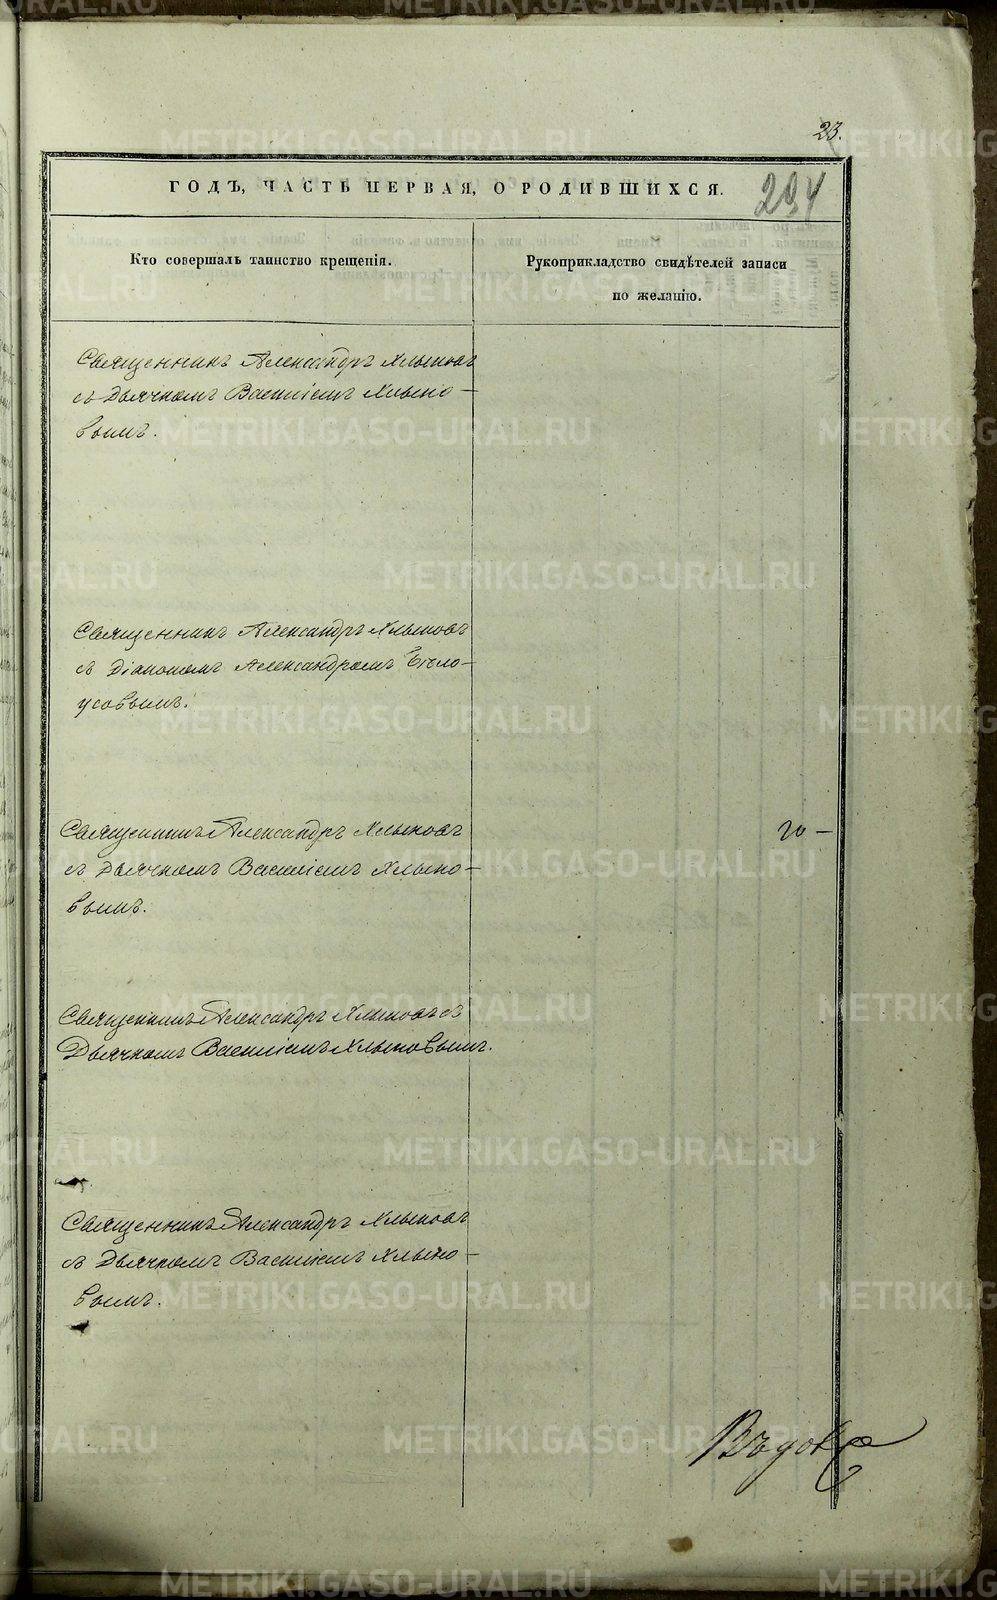 23.
ГОДЪ, ЧАСТЬ ПЕРВАЯ, О РОДИВШИХСЯ.
294
Кто совершалъ таинство крещенія.
Рукоприкладство свидѣтелей записи
по желанію.
Священникъ Александръ Хлыновъ
съ Дьячкомъ Василіемъ Хлыно-
вымъ.
Священникъ Александръ Хлыновъ
съ Діакономъ Александромъ Бѣло-
усовымъ.
Священникъ Александръ Хлыновъ
съ Дьячкомъ Василіемъ Хлыно-
вымъ.
Священникъ Александръ Хлыновъ съ
Дьячкомъ Василіемъ Хлыновымъ.
Священникъ Александръ Хлыновъ
съ Дьячкомъ Василіемъ Хлыно-
вымъ.
METRIKI.GASO-URAL.RU